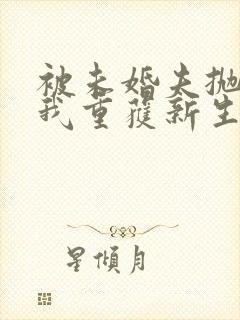 被未婚夫抛
我重获新生
星倾月